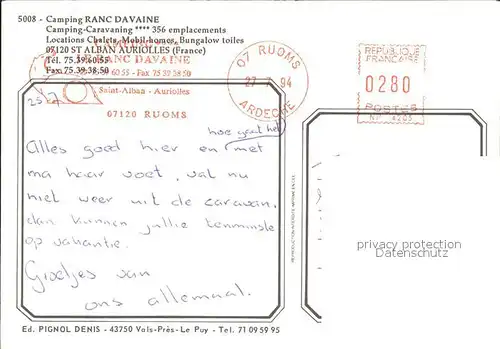 5008 - Camping RANC DAVAINE
Camping-Caravaning **** 356 emplacements
Locations Chalets, Mobil-homes, Bungalow toiles
07120 ST ALBAN AURIOLLES (France)
Tél. 75.39.60.55
Fax 75.39.38.50
LE RANC DAVAINE
60 55 - Fax 75 39 38 50
Saint-Alban - Auriolles
07120 RUOMS
07 RUOMS
27 94
ARDECHE
REPUBLIQUE
FRANCAISE
0280
POSTES
25/7
hoe gaat het
Alles goed hier en met
ma haar voet, val nu
niet weer uit de caravan,
dan kunnen jullie tenminste
op vakantie.
Groetjes van
ons allemaal.
privacy protection
Datenschutz
Ed. PIGNOL DENIS - 43750 Vals-Près-Le Puy - Tel. 71 09 59 95